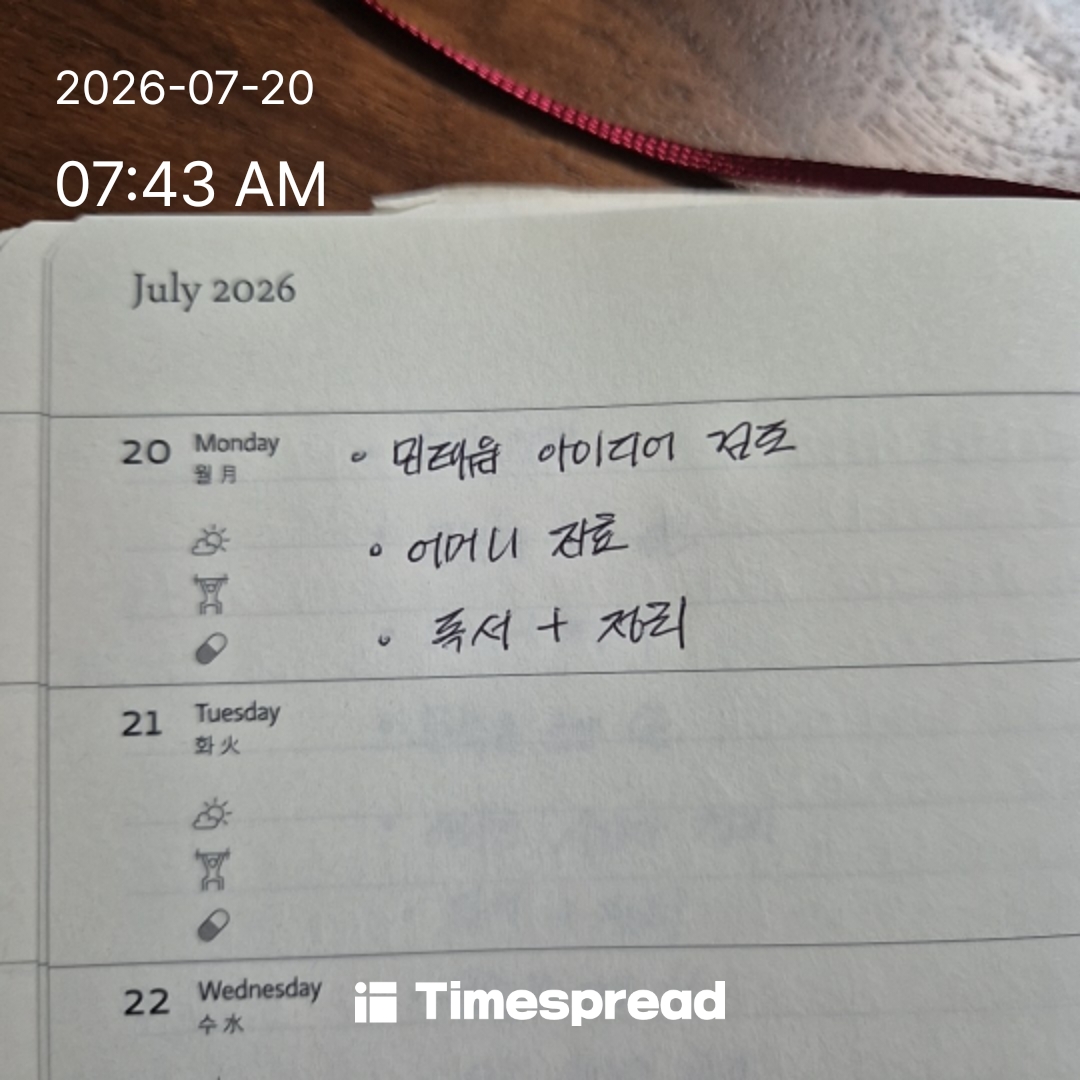 2026-07-20
07:43 AM
July 2026
20 Monday
월 月
• 민태윤 아이디어 검토
• 어머니 자료
• 독서 + 정리
21 Tuesday
화 火
22 Wednesday
수 水
Timespread